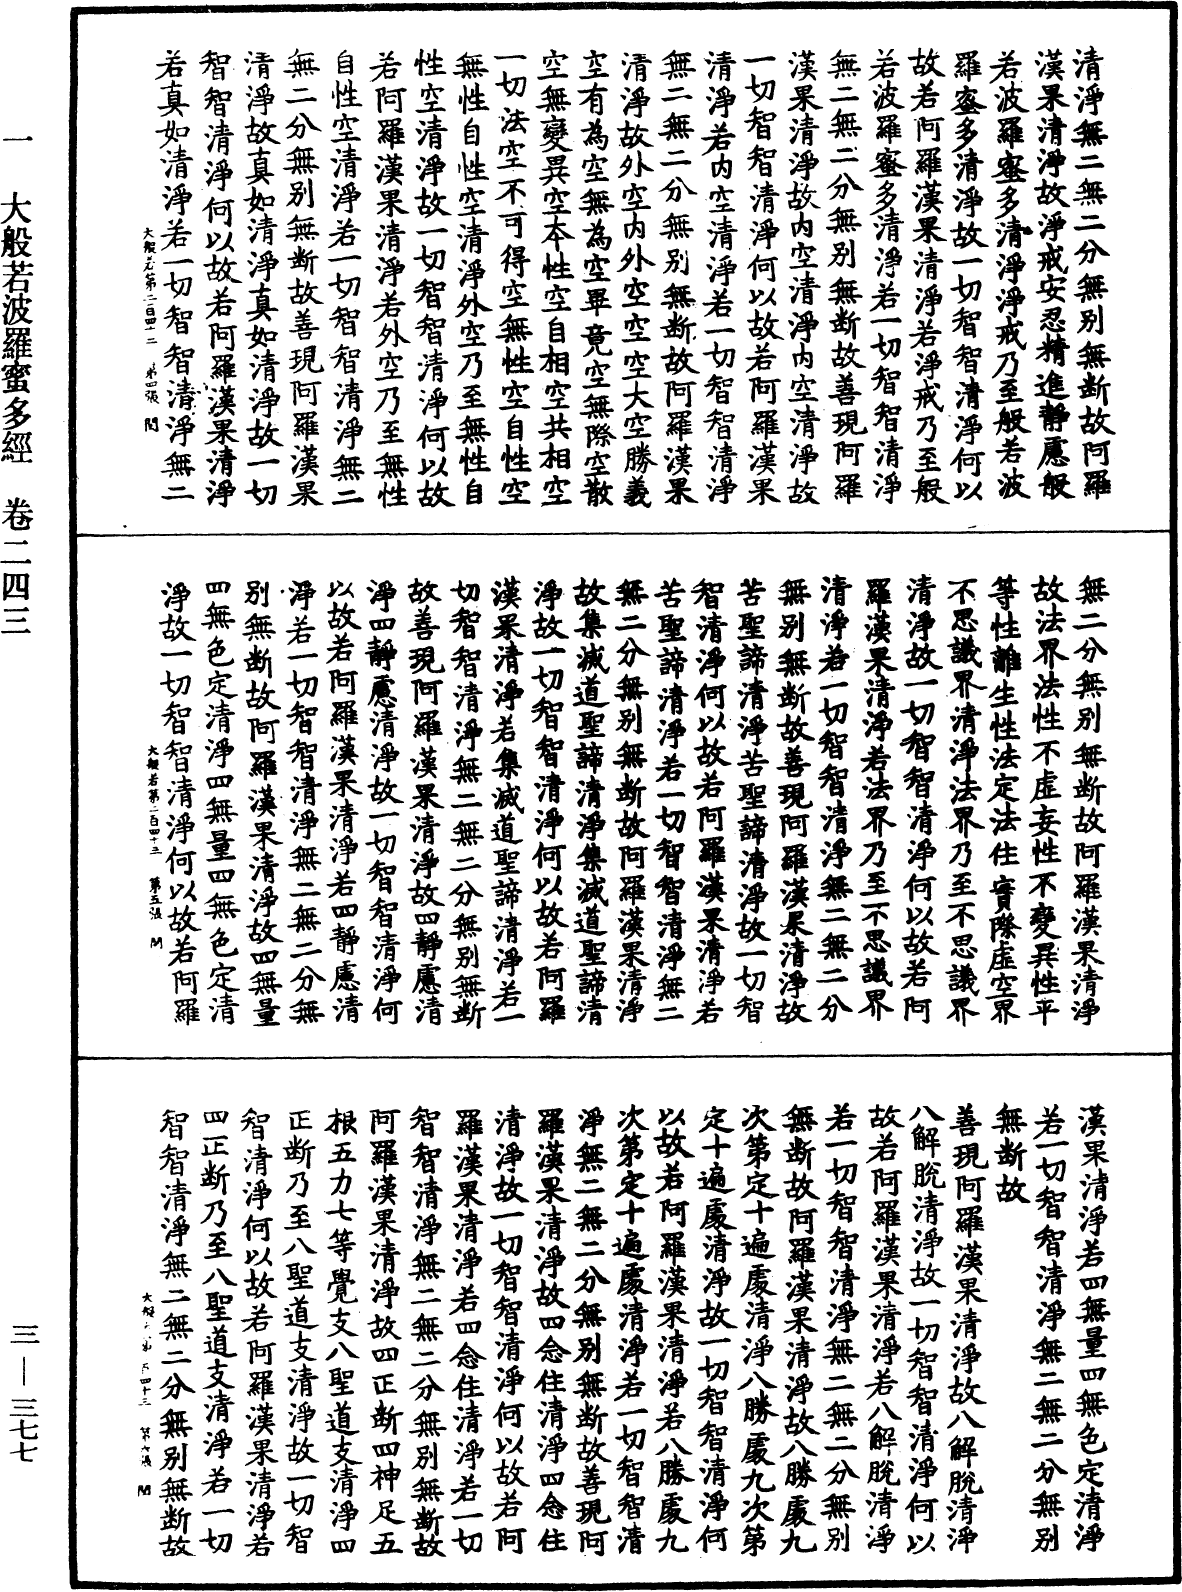 清淨無二無二分無別無斷故阿羅
漢果清淨故淨戒安忍精進靜慮般
若波羅蜜多清淨淨戒乃至般若波
羅蜜多清淨故一切智智清淨何以
故若阿羅漢果清淨若淨戒乃至般
若波羅蜜多清淨若一切智智清淨
無二無二分無別無斷故善現阿羅
漢果清淨故內空清淨內空清淨故
一切智智清淨何以故若阿羅漢果
清淨若內空清淨若一切智智清淨
無二無二分無別無斷故阿羅漢果
清淨故外空內外空空空大空勝義
空有為空無為空畢竟空無際空散
空無變異空本性空自相空共相空
一切法空不可得空無性空自性空
無性自性空清淨外空乃至無性自
性空清淨故一切智智清淨何以故
若阿羅漢果清淨若外空乃至無性
自性空清淨若一切智智清淨無二
無二分無別無斷故善現阿羅漢果
清淨故真如清淨真如清淨故一切
智智清淨何以故若阿羅漢果清淨
若真如清淨若一切智智清淨無二
大般若第二百四十三 第四張 閏
無二分無別無斷故阿羅漢果清淨
故法界法性不虛妄性不變異性平
等性離生性法定法住實際虛空界
不思議界清淨法界乃至不思議界
清淨故一切智智清淨何以故若阿
羅漢果清淨若法界乃至不思議界
清淨若一切智智清淨無二無二分
無別無斷故善現阿羅漢果清淨故
苦聖諦清淨苦聖諦清淨故一切智
智清淨何以故若阿羅漢果清淨若
苦聖諦清淨若一切智智清淨無二
無二分無別無斷故阿羅漢果清淨
故集滅道聖諦清淨集滅道聖諦清
淨故一切智智清淨何以故若阿羅
漢果清淨若集滅道聖諦清淨若一
切智智清淨無二無二分無別無斷
故善現阿羅漢果清淨故四靜慮清
淨四靜慮清淨故一切智智清淨何
以故若阿羅漢果清淨若四靜慮清
淨若一切智智清淨無二無二分無
別無斷故阿羅漢果清淨故四無量
四無色定清淨四無量四無色定清
淨故一切智智清淨何以故若阿羅
大般若第二百四十三 第五張
漢果清淨若四無量四無色定清淨
若一切智智清淨無二無二分無別
無斷故
善現阿羅漢果清淨故八解脫清淨
八解脫清淨故一切智智清淨何以
故若阿羅漢果清淨若八解脫清淨
若一切智智清淨無二無二分無別
無斷故阿羅漢果清淨故八勝處九
次第定十遍處清淨八勝處九次第
定十遍處清淨故一切智智清淨何
以故若阿羅漢果清淨若八勝處九
次第定十遍處清淨若一切智智清
淨無二無二分無別無斷故善現阿
羅漢果清淨故四念住清淨四念住
清淨故一切智智清淨何以故若阿
羅漢果清淨若四念住清淨若一切
智智清淨無二無二分無別無斷故
阿羅漢果清淨故四正斷四神足五
根五力七等覺支八聖道支清淨四
正斷乃至八聖道支清淨故一切智
智清淨何以故若阿羅漢果清淨若
四正斷乃至八聖道支清淨若一切
智智清淨無二無二分無別無斷故
一 大般若波羅蜜多經 卷二四三
三—三七七